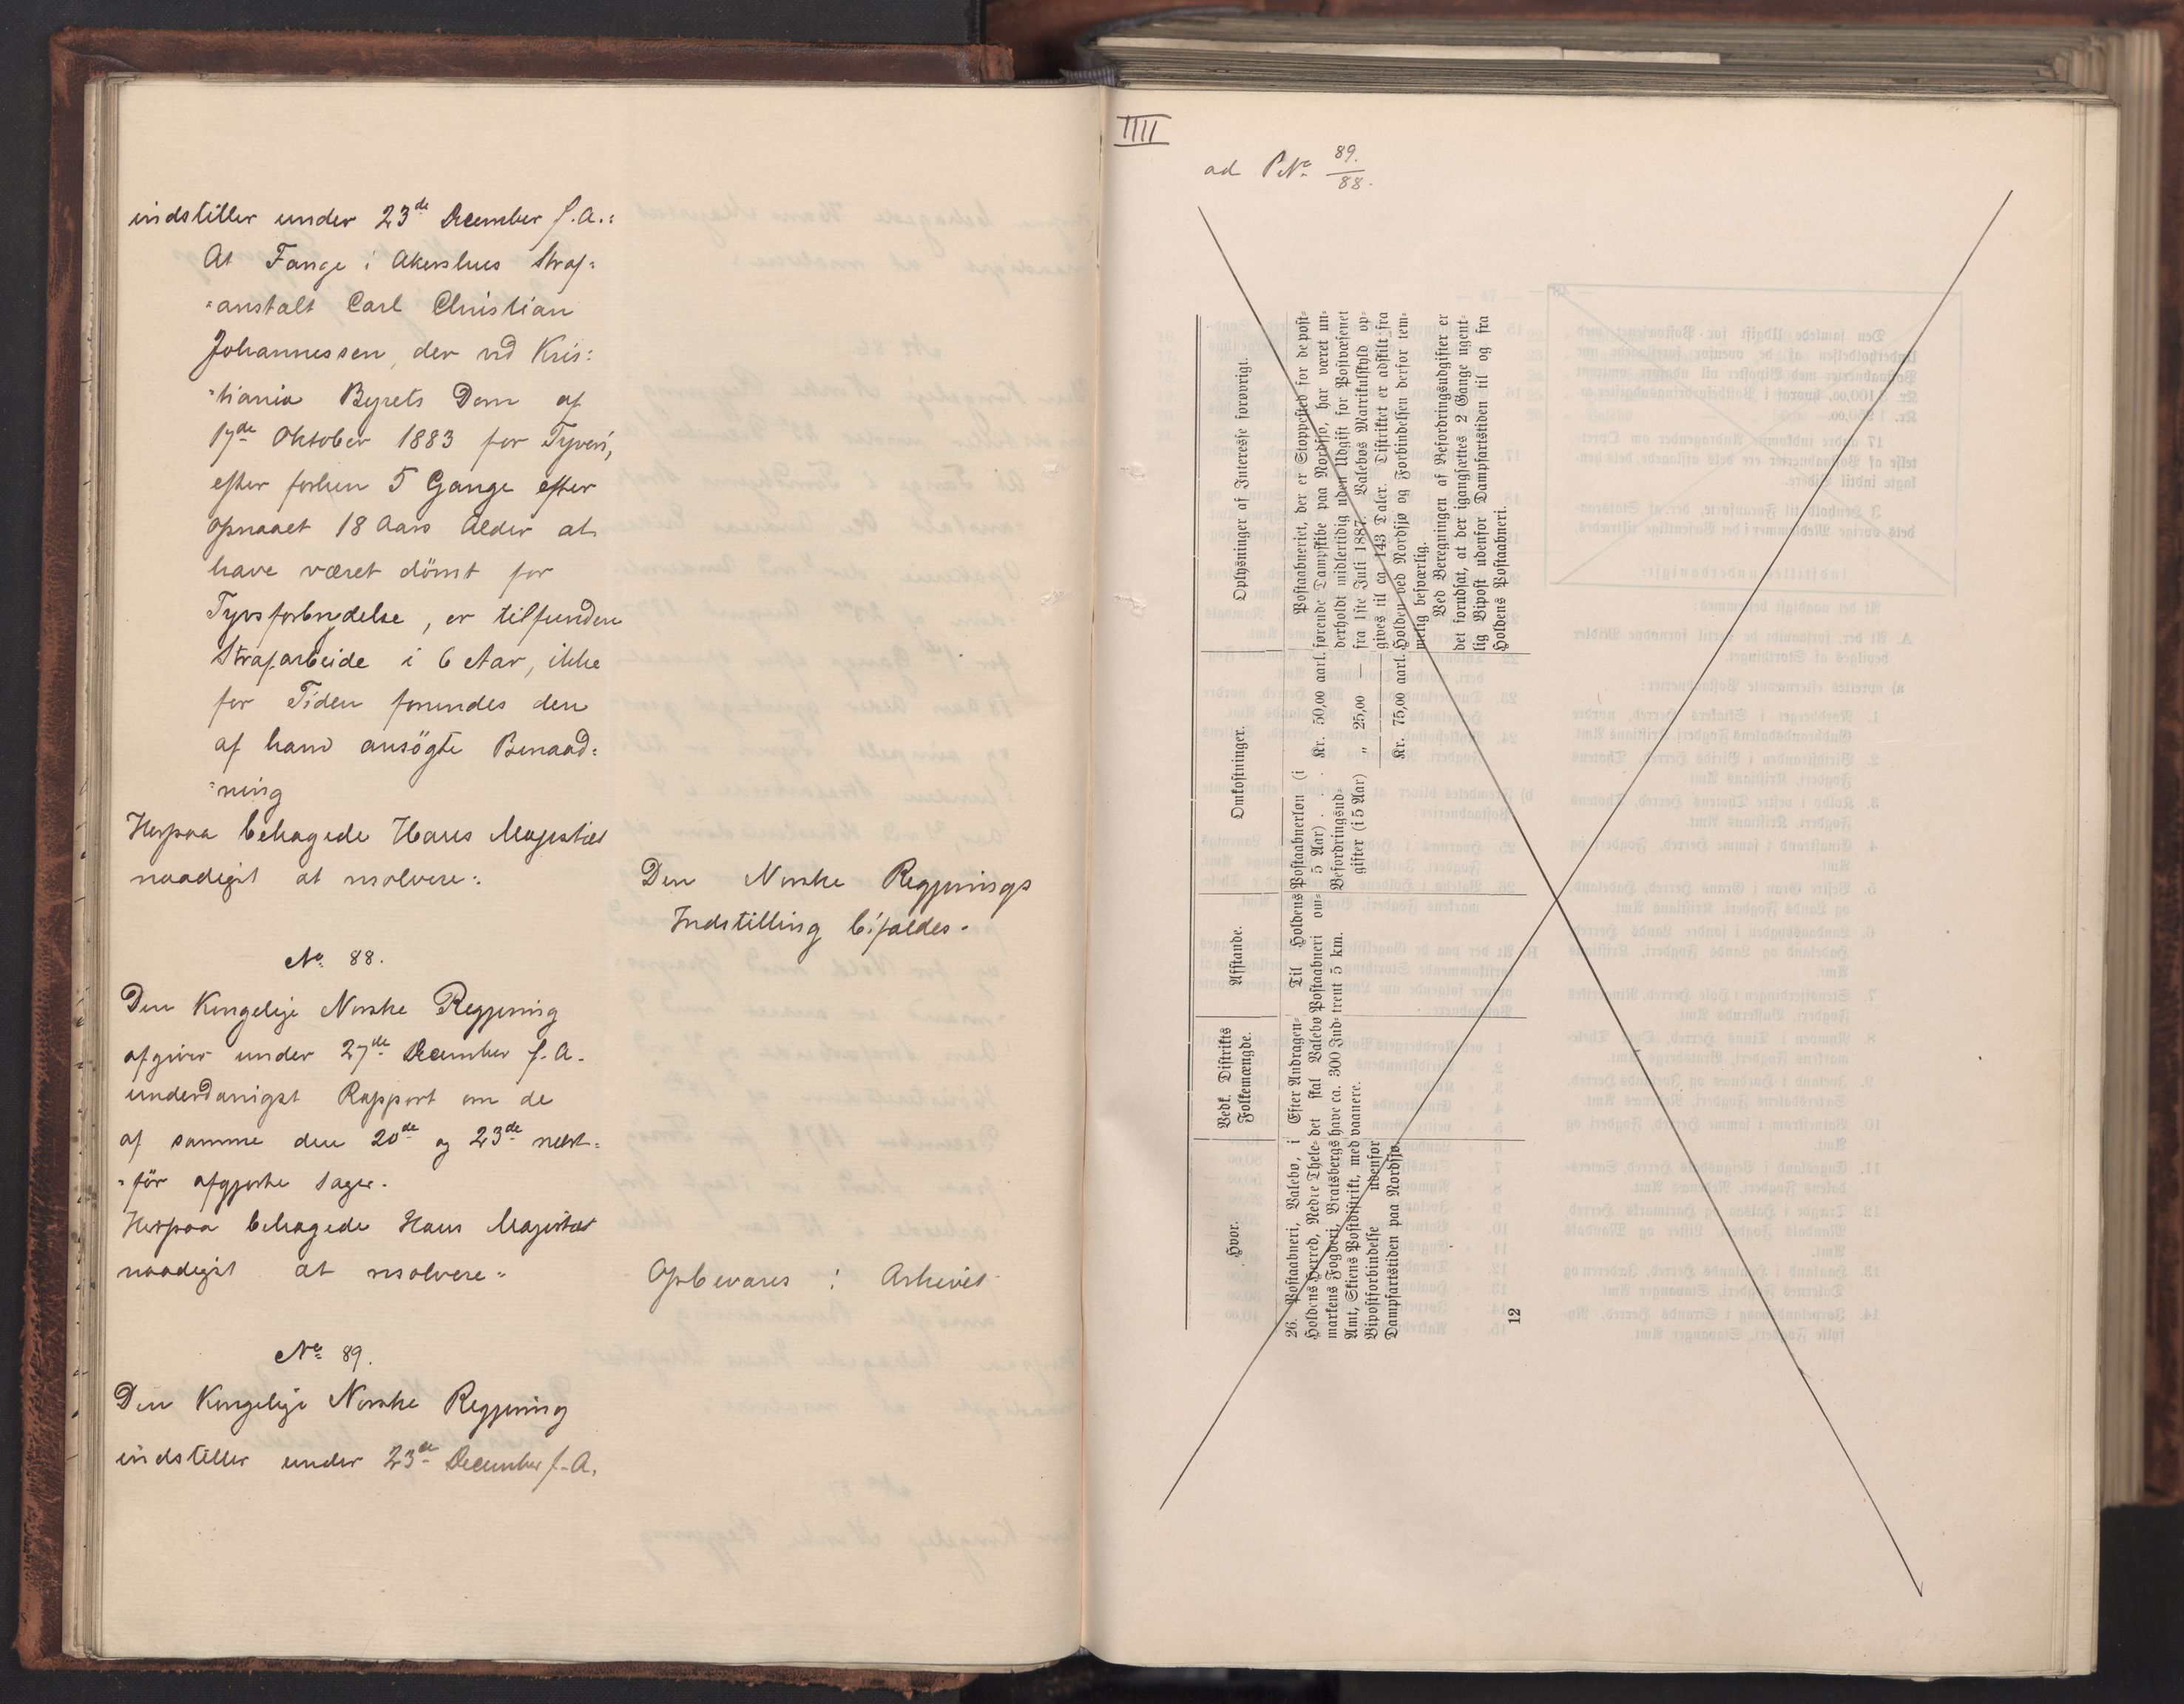 indstiller under 23de December f.A.:
At Fange i Akershus Straf=
=anstalt Carl Christian
Johannessen, der ved Kris:
=tiania Byrets Dom af
17de Oktober 1883 for Tyveri,
efter forhen 5 Gange efter
opnaaet 18 Aars Alder at
have været dömt for
Tyvsforbrydelse, er tilfunden
Strafarbeide i 6 Aar, ikke
for Tiden forundes den
af ham ansögte Benaad=
=ning
Herpaa behagede Hans Majestæt
naadigst at resolvere:
Den Norske Regjerings
Indstilling bifaldes.
No 88.
Den Kongelige Norske Regjering
afgiver under 27de December f.A.
underdanigst Rapport om de
af samme den 20de og 23de næst=
=för afgjorte Sager.
Herpaa behagede Hans Majestæt
naadigst at resolvere:
Opbevares i Arkivet
No 89.
Den Kongelige Norske Regjering
indstiller under 23de December f.A.
IIII
ad PNo 89./88.
Hvor.
Vedk. Distrikts
Folkemængde.
Afstande.
Omkostninger.
Oplysninger af Interesse forøvrigt.
26. Postaabneri, Valebø, i
Holdens Herred, Nedre Thele-
markens Fogderi, Bratsbergs
Amt, Skiens Postdistrikt, med
Bipostforbindelse udenfor
Dampfartstiden paa Nordsjø.
Efter Andragen-
det skal Valebø
have ca. 300 Ind-
vaanere.
Til Holdens
Postaabneri om-
trent 5 km.
Postaabnerløn (i
5 Aar) . . . Kr. 50,00 aarl.
Befordringsud-
gifter (i 5 Aar) „ 25,00 —
Kr. 75,00 aarl.
Postaabneriet, der er Stoppested for de post-
førende Dampskibe paa Nordsjø, har været un-
derholdt midlertidig uden Udgift for Postvæsenet
fra 1ste Juli 1887. Valebøs Matrikulskyld op-
gives til ca. 143 Daler. Distriktet er adskilt fra
Holden ved Nordsjø og Forbindelsen derfor tem-
melig besværlig.
Ved Beregningen af Befordringsudgifter er
det forudsat, at der igangsættes 2 Gange ugent-
lig Bipost udenfor Dampfartstiden til og fra
Holdens Postaabneri.
12